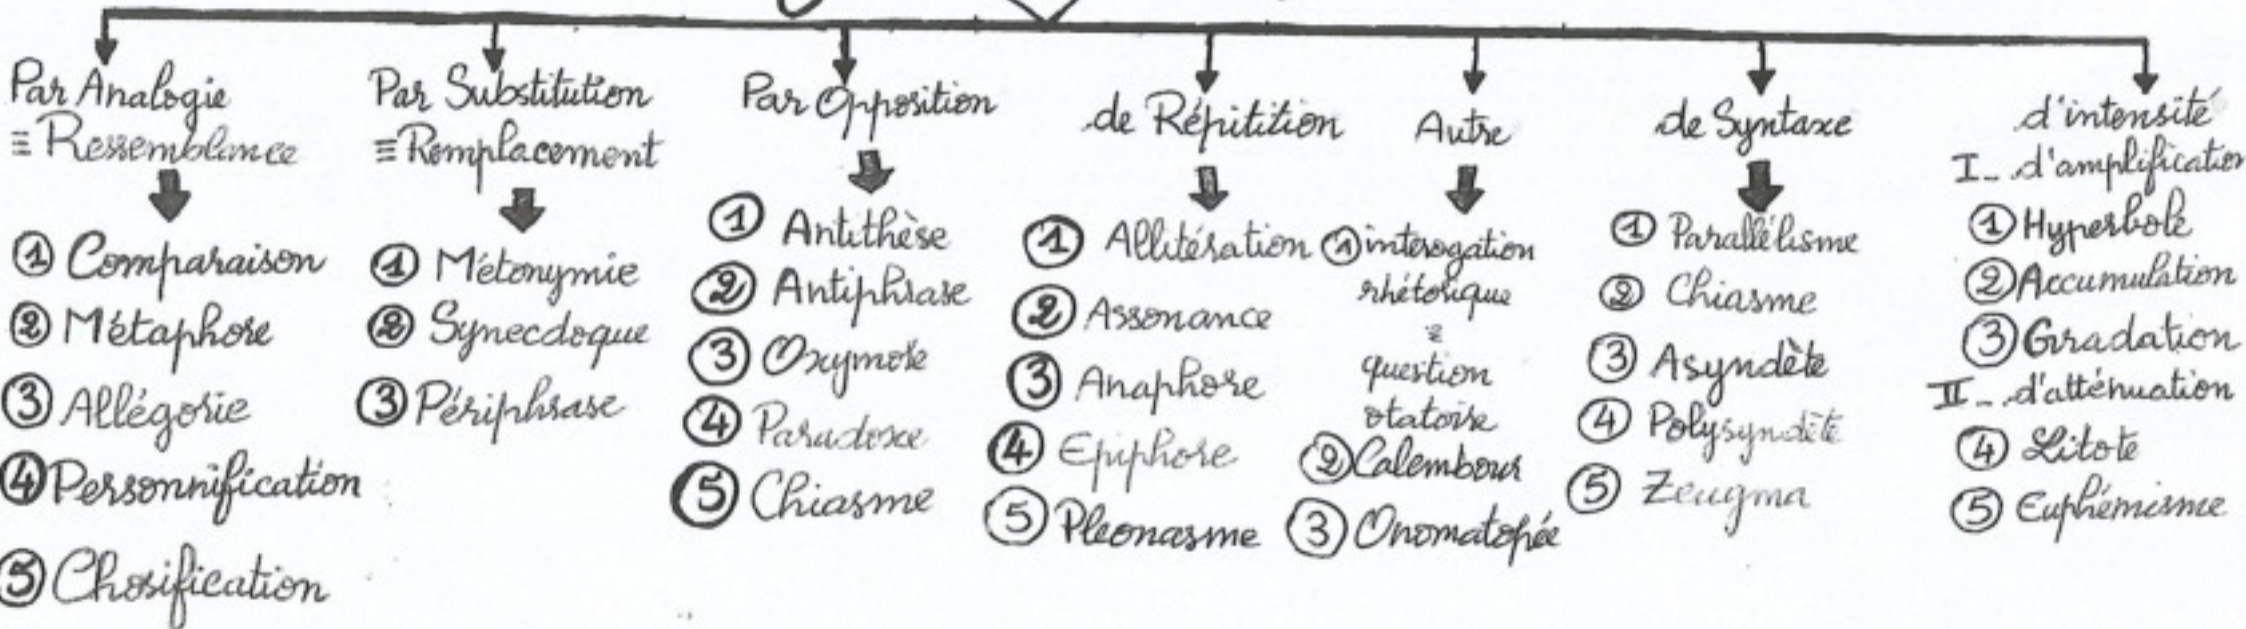 Par Analogie
≡ Ressemblance
① Comparaison
② Métaphore
③ Allégorie
④ Personnification
⑤ Chosification
Par Substitution
≡ Remplacement
① Métonymie
② Synecdoque
③ Périphrase
Par Opposition
① Antithèse
② Antiphrase
③ Oxymore
④ Paradoxe
⑤ Chiasme
de Répitition
① Allitération
② Assonance
③ Anaphore
④ Epiphore
⑤ Pleonasme
Autre
① interogation
rhétorique
≡
question
otatoire
② Calembour
③ Onomatopée
de Syntaxe
① Parallélisme
② Chiasme
③ Asyndète
④ Polysyndète
⑤ Zeugma
d'intensité
I_ d'amplification
① Hyperbole
② Accumulation
③ Gradation
II_ d'atténuation
④ Litote
⑤ Euphémisme